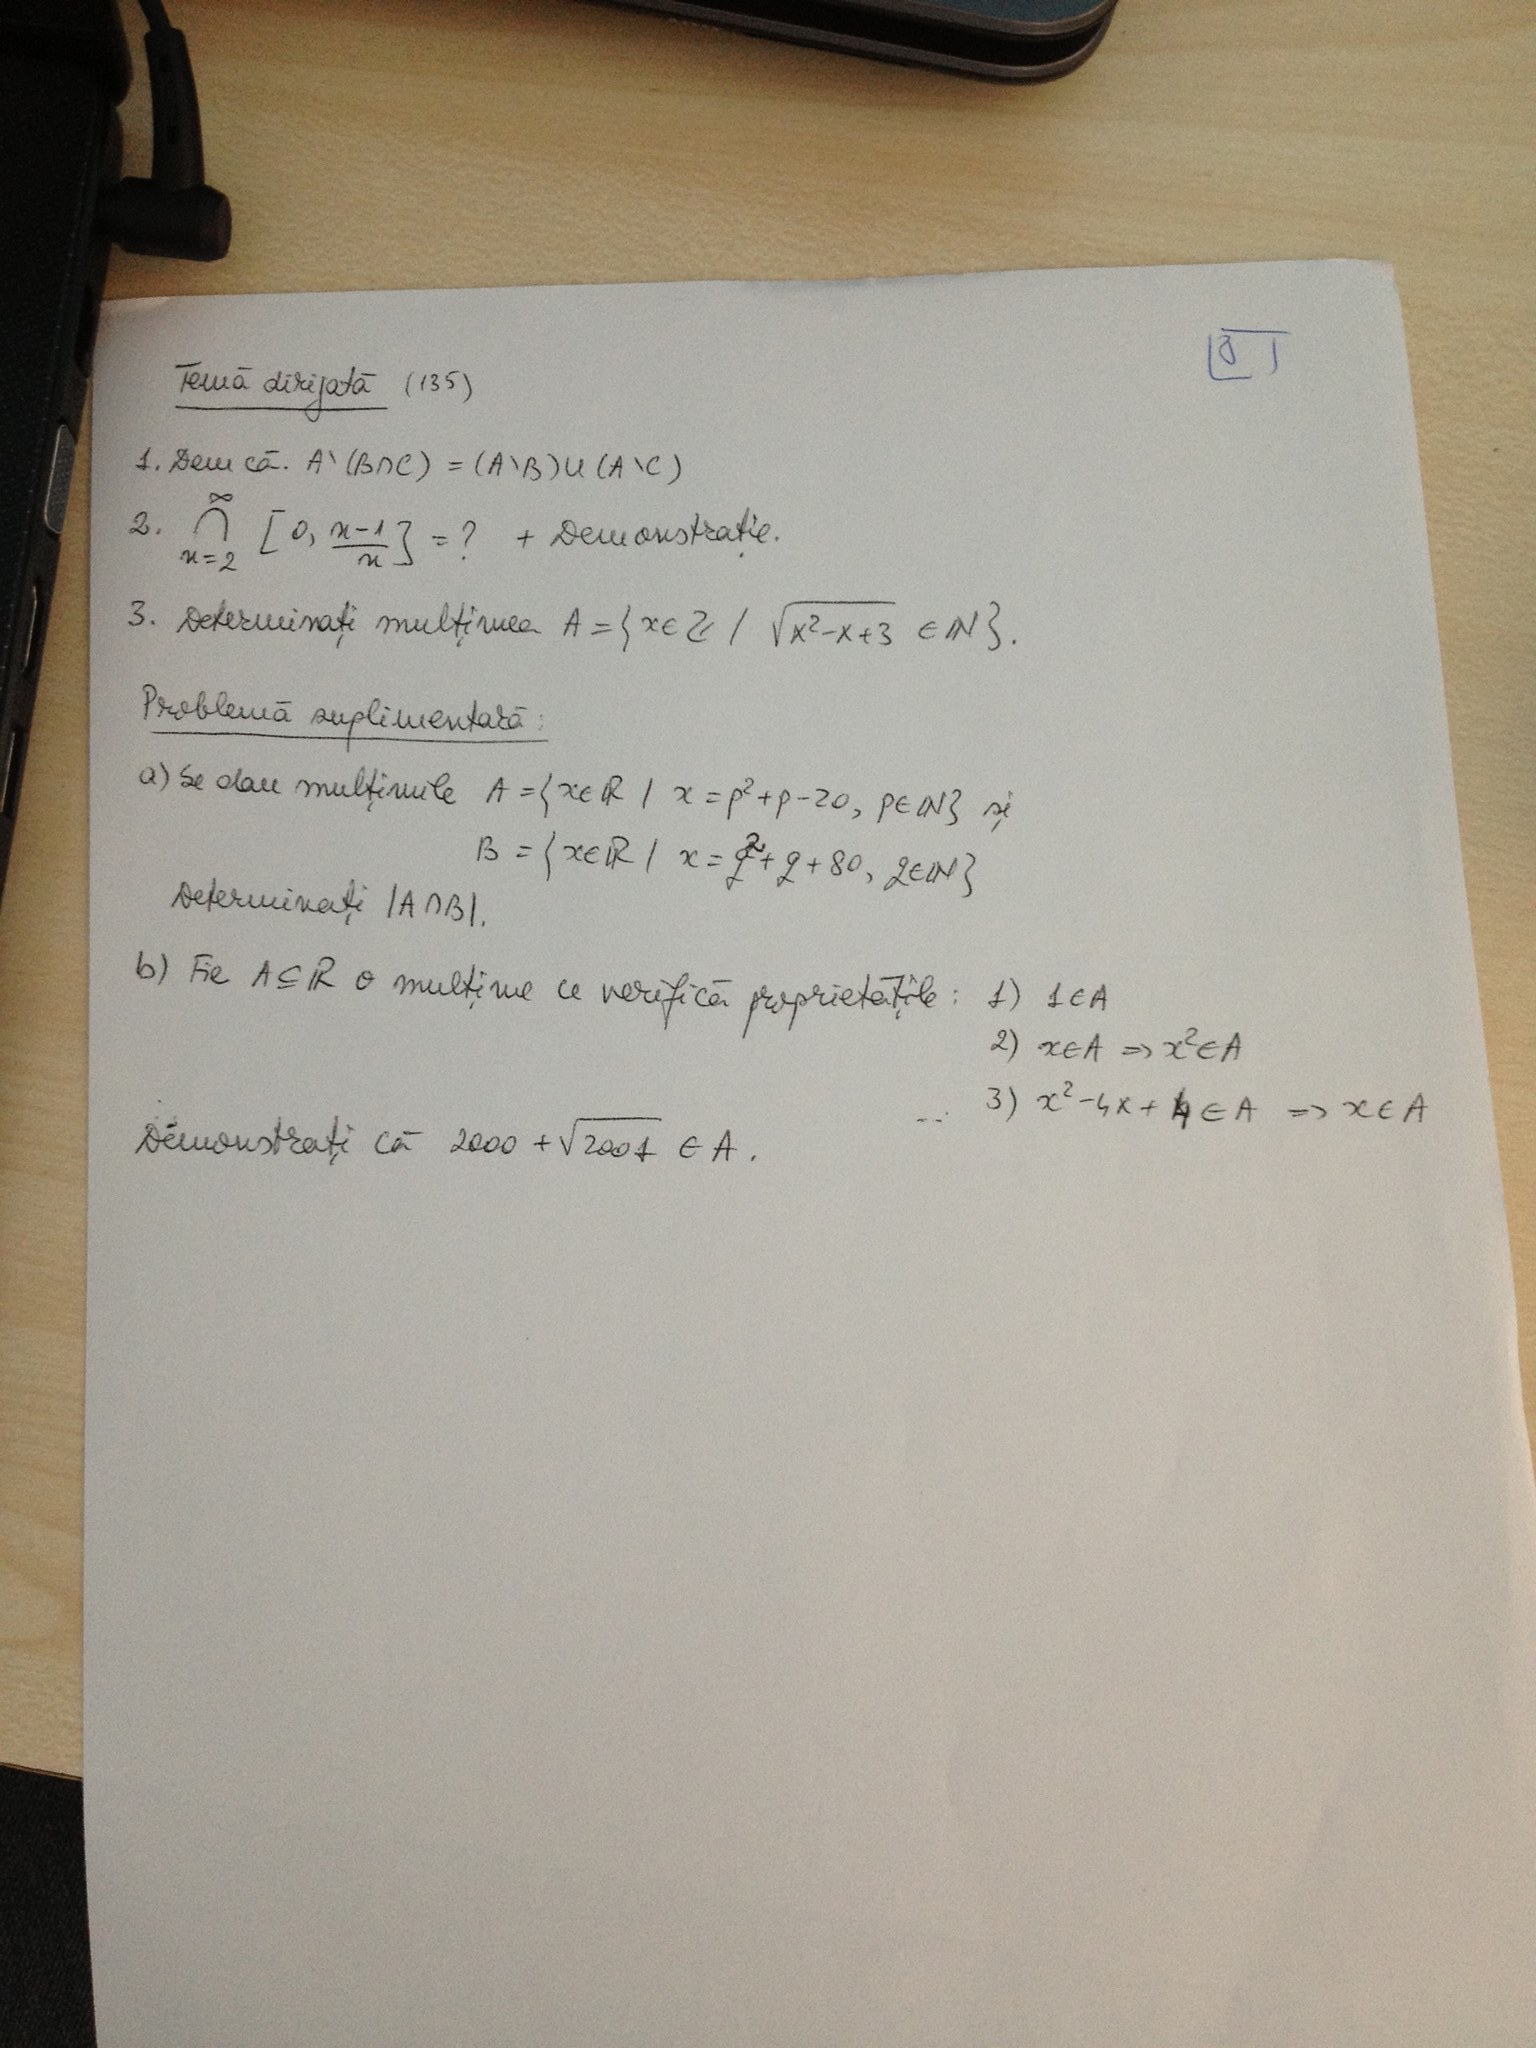 Temă dirijată (135)
1. Dem că. A\(B∩C) = (A\B)∪(A\C)
2. ∞ ∩ n=2 [0, n-1/n] = ? + Demonstrație.
3. Determinați mulțimea A = {x∈ℤ / √x²-x+3 ∈ ℕ}.
Problemă suplimentară:
a) Se dau mulțimile A = {x∈ℝ / x = p²+p-20, p∈ℕ} și
B = {x∈ℝ / x = q²+q+80, q∈ℕ}
Determinați |A∩B|.
b) Fie A⊆ℝ o mulțime ce verifică proprietățile: 1) 1∈A
2) x∈A => x²∈A
3) x²-4x+4∈A => x∈A
Demonstrați că 2000+√2001 ∈ A.